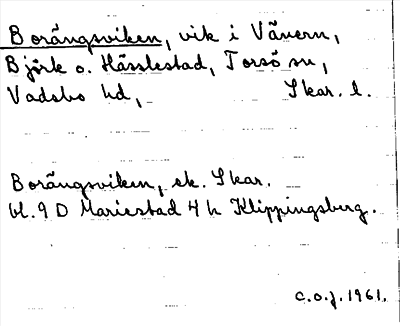 Borängsviken, vik i Vänern,
Björk o. Hässlestad, Torsö sn,
Vadsbo hd, Skar. l.
Borängsviken, ek. Skar.
bl. 9 D Mariestad 4 h Klippingsberg.
C.O.J. 1961.